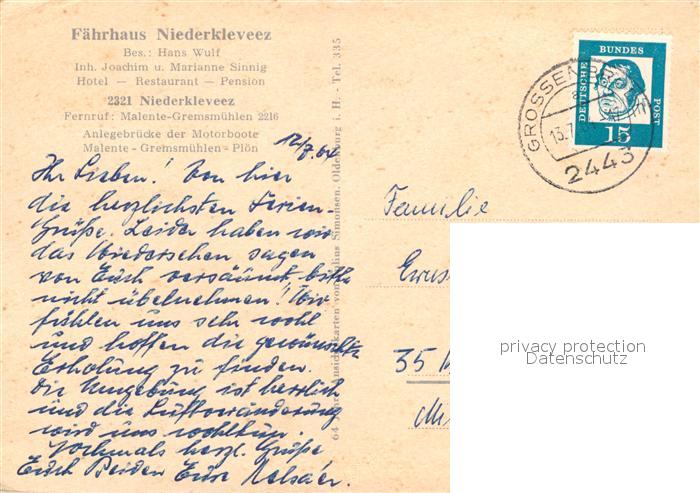 Fährhaus Niederkleveez
Bes.: Hans Wulf
Inh. Joachim u. Marianne Sinnig
Hotel — Restaurant — Pension
2321 Niederkleveez
Fernruf: Malente-Gremsmühlen 2216
Anlegebrücke der Motorboote
Malente - Gremsmühlen - Plön
12/7.64
Ihr Lieben! Von hier
die herzlichsten Ferien-
Grüße. Leider haben wir
das Wiedersehen sagen
von Euch versäumt, bitte
nicht übelnehmen! Wir
fühlen uns sehr wohl
und hoffen die gewünschte
Erholung zu finden.
Die Umgebung ist herrlich
und die Luftveränderung
wird uns wohltun.
Nochmals herzl. Grüße
Euch Beiden Eure
Simonsen, Oldenburg i. H. - Tel. 335
DEUTSCHE BUNDES POST
15
GROSSENBRODE
13.7.
2443
Familie
35
privacy protection
Datenschutz